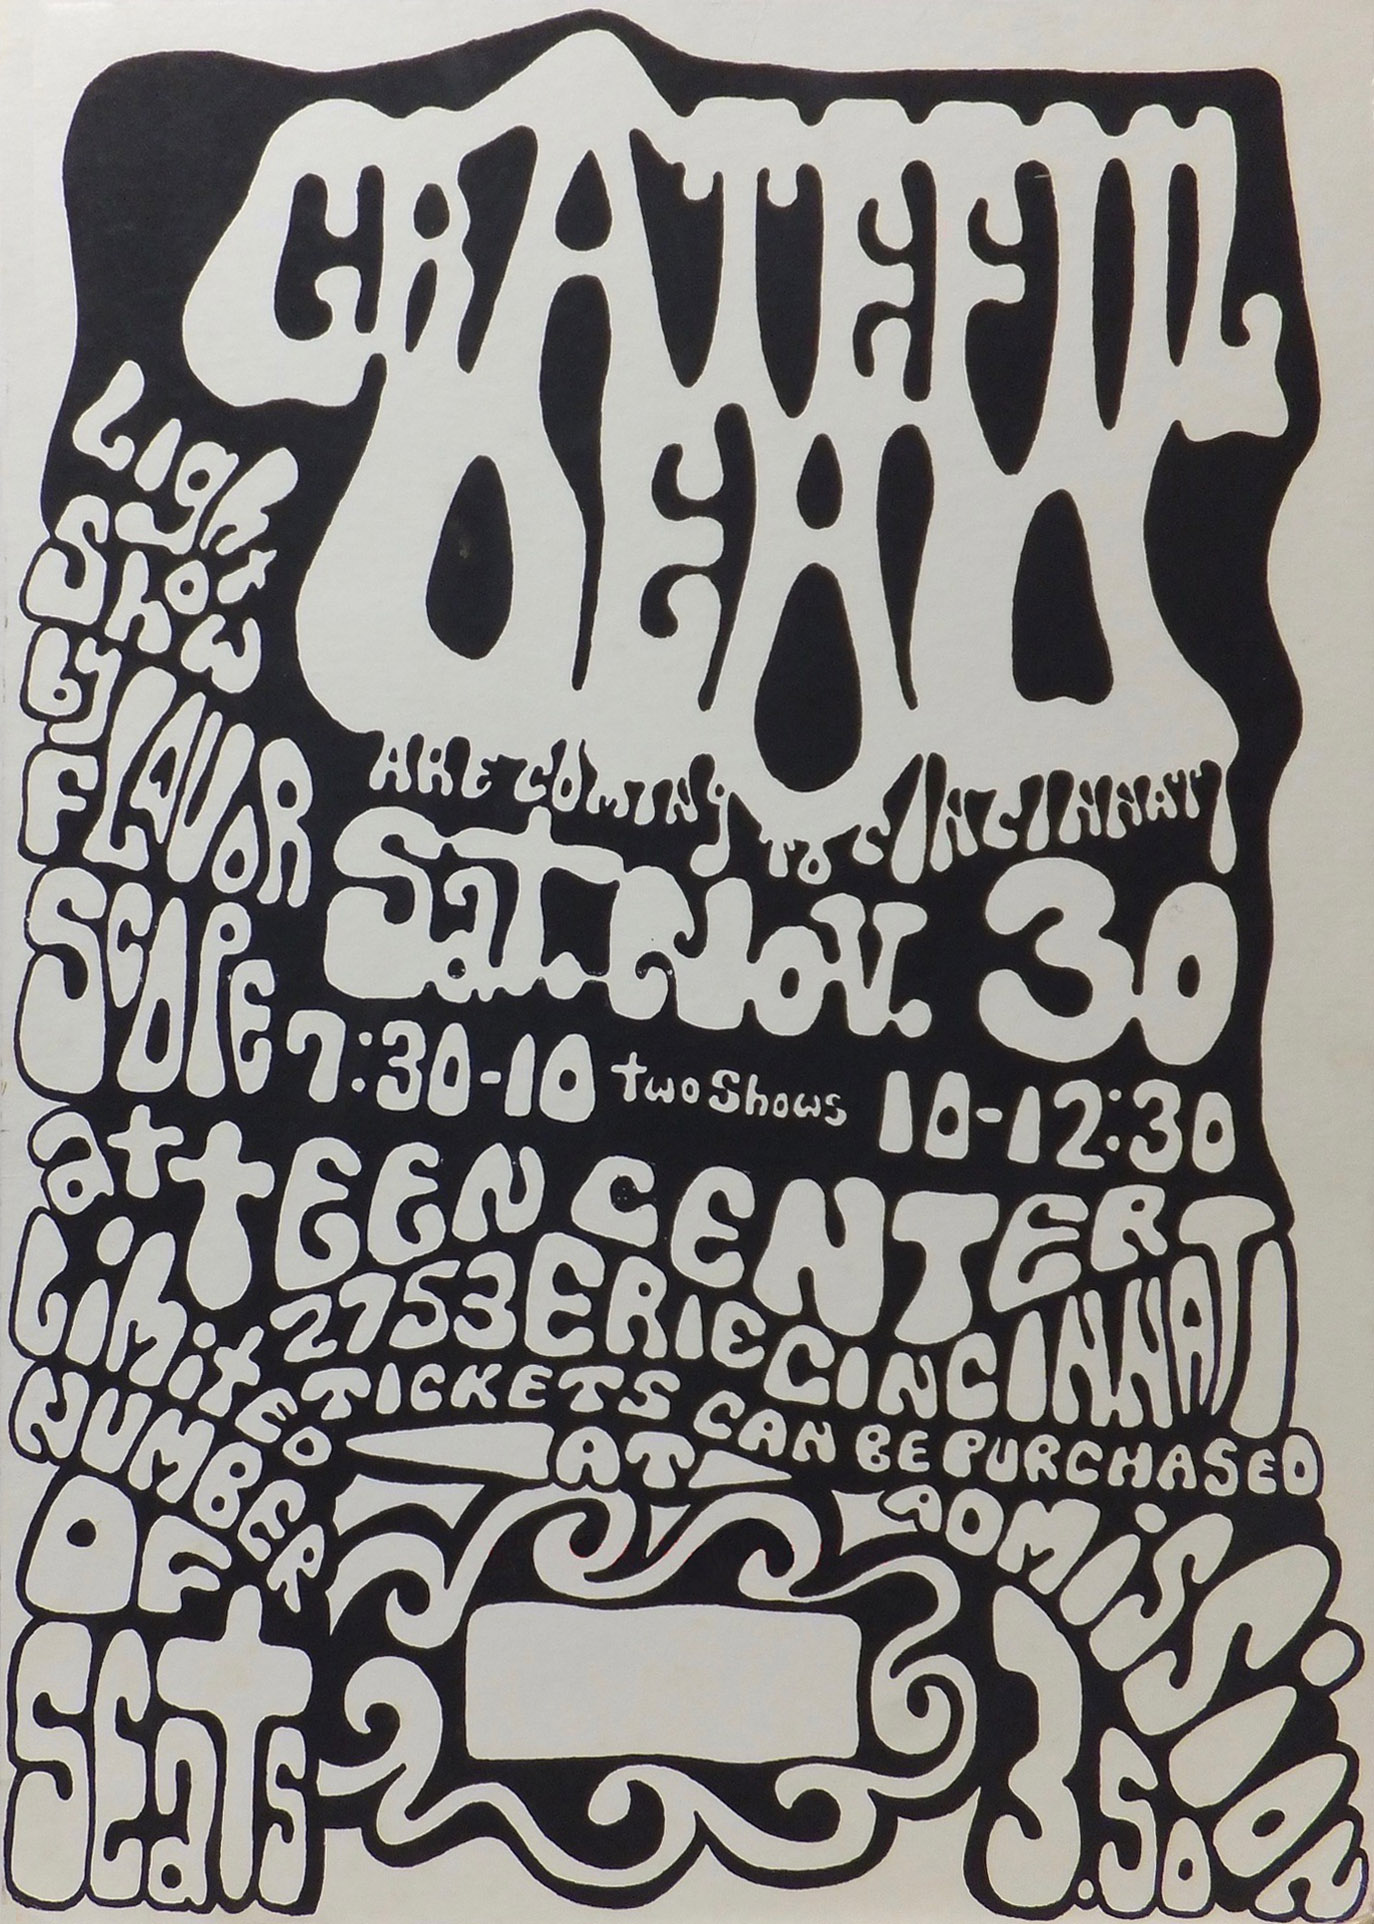 GRATEFUL
DEAD
ARE COMING TO CINCINNATI
Light
Show
by
FLAVOR
SCOPE
Sat. Nov. 30
7:30-10 two Shows 10-12:30
at TEEN CENTER
2753 ERIE CINCINNATI
TICKETS CAN BE PURCHASED
AT
Limited
NUMBER
OF
SEATS
ADMISSION
3.50